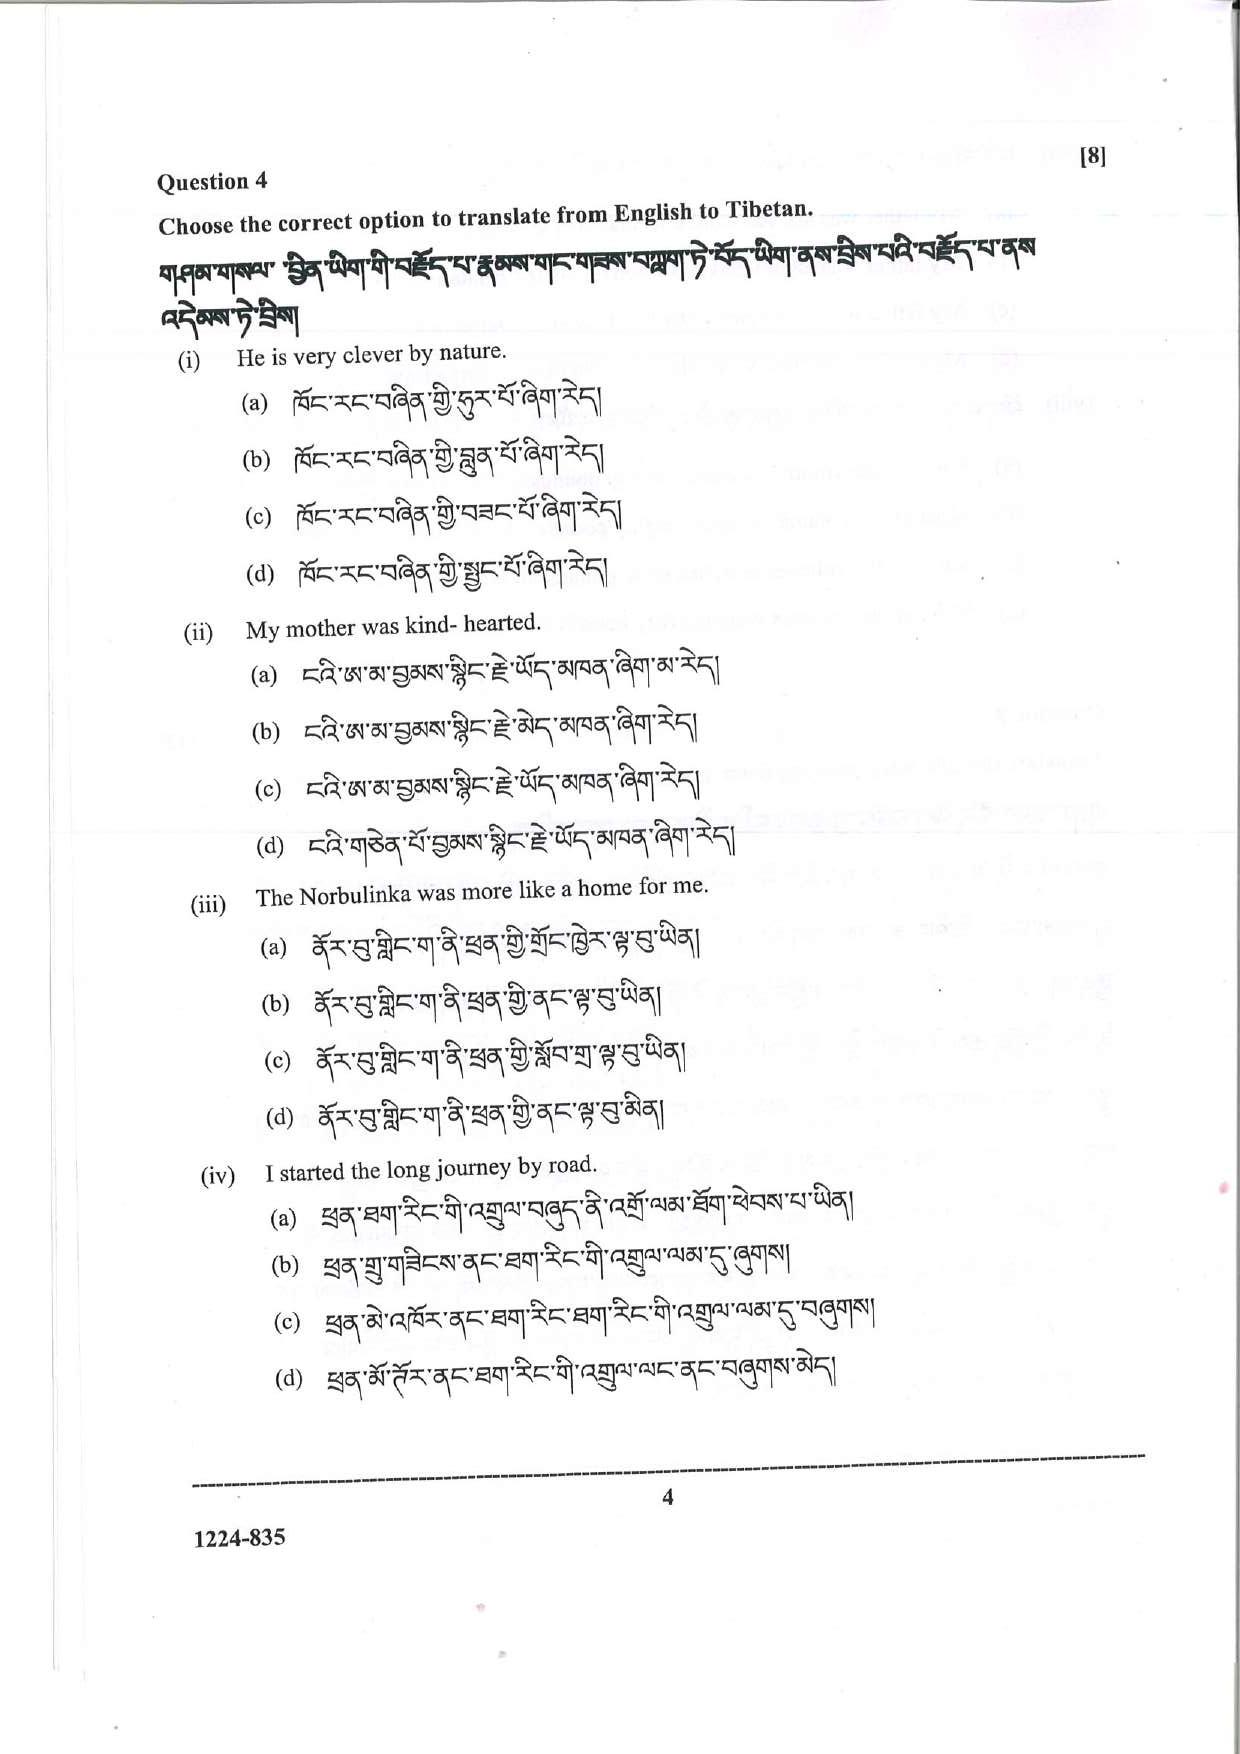 [8]
Question 4
Choose the correct option to translate from English to Tibetan.
གཤམ་གསལ་ བྱིན་ཡིག་གི་བརྗོད་པ་རྣམས་གང་གཟས་བཀླག་ཏེ་བོད་ཡིག་ནས་བྲིས་པའི་བརྗོད་པ་ནས
འདེམས་ཏེ་བྲིས།
(i) He is very clever by nature.
(a) ཁོང་རང་བཞིན་གྱི་ཧུར་པོ་ཞིག་རེད།
(b) ཁོང་རང་བཞིན་གྱི་བླུན་པོ་ཞིག་རེད།
(c) ཁོང་རང་བཞིན་གྱི་བཟང་པོ་ཞིག་རེད།
(d) ཁོང་རང་བཞིན་གྱི་སྤྱང་པོ་ཞིག་རེད།
(ii) My mother was kind- hearted.
(a) ངའི་ཨ་མ་བྱམས་སྙིང་རྗེ་ཡོད་མཁན་ཞིག་མ་རེད།
(b) ངའི་ཨ་མ་བྱམས་སྙིང་རྗེ་མེད་མཁན་ཞིག་རེད།
(c) ངའི་ཨ་མ་བྱམས་སྙིང་རྗེ་ཡོད་མཁན་ཞིག་རེད།
(d) ངའི་གཅེན་པོ་བྱམས་སྙིང་རྗེ་ཡོད་མཁན་ཞིག་རེད།
(iii) The Norbulinka was more like a home for me.
(a) ནོར་བུ་གླིང་ག་ནི་ཕྲན་གྱི་གྲོང་ཁྱེར་ལྟ་བུ་ཡིན།
(b) ནོར་བུ་གླིང་ག་ནི་ཕྲན་གྱི་ནང་ལྟ་བུ་ཡིན།
(c) ནོར་བུ་གླིང་ག་ནི་ཕྲན་གྱི་སློབ་གྲྭ་ལྟ་བུ་ཡིན།
(d) ནོར་བུ་གླིང་ག་ནི་ཕྲན་གྱི་ནང་ལྟ་བུ་མིན།
(iv) I started the long journey by road.
(a) ཕྲན་ཐག་རིང་གི་འགྲུལ་བཞུད་ནི་འགྲོ་ལམ་ཐོག་ཕེབས་པ་ཡིན།
(b) ཕྲན་གྲུ་གཟིངས་ནང་ཐག་རིང་གི་འགྲུལ་ལམ་དུ་ཞུགས།
(c) ཕྲན་མེ་འཁོར་ནང་ཐག་རིང་ཐག་རིང་གི་འགྲུལ་ལམ་དུ་བཞུགས།
(d) ཕྲན་མོ་ཊོར་ནང་ཐག་རིང་གི་འགྲུལ་ལང་ནང་བཞུགས་མེད།
4
1224-835